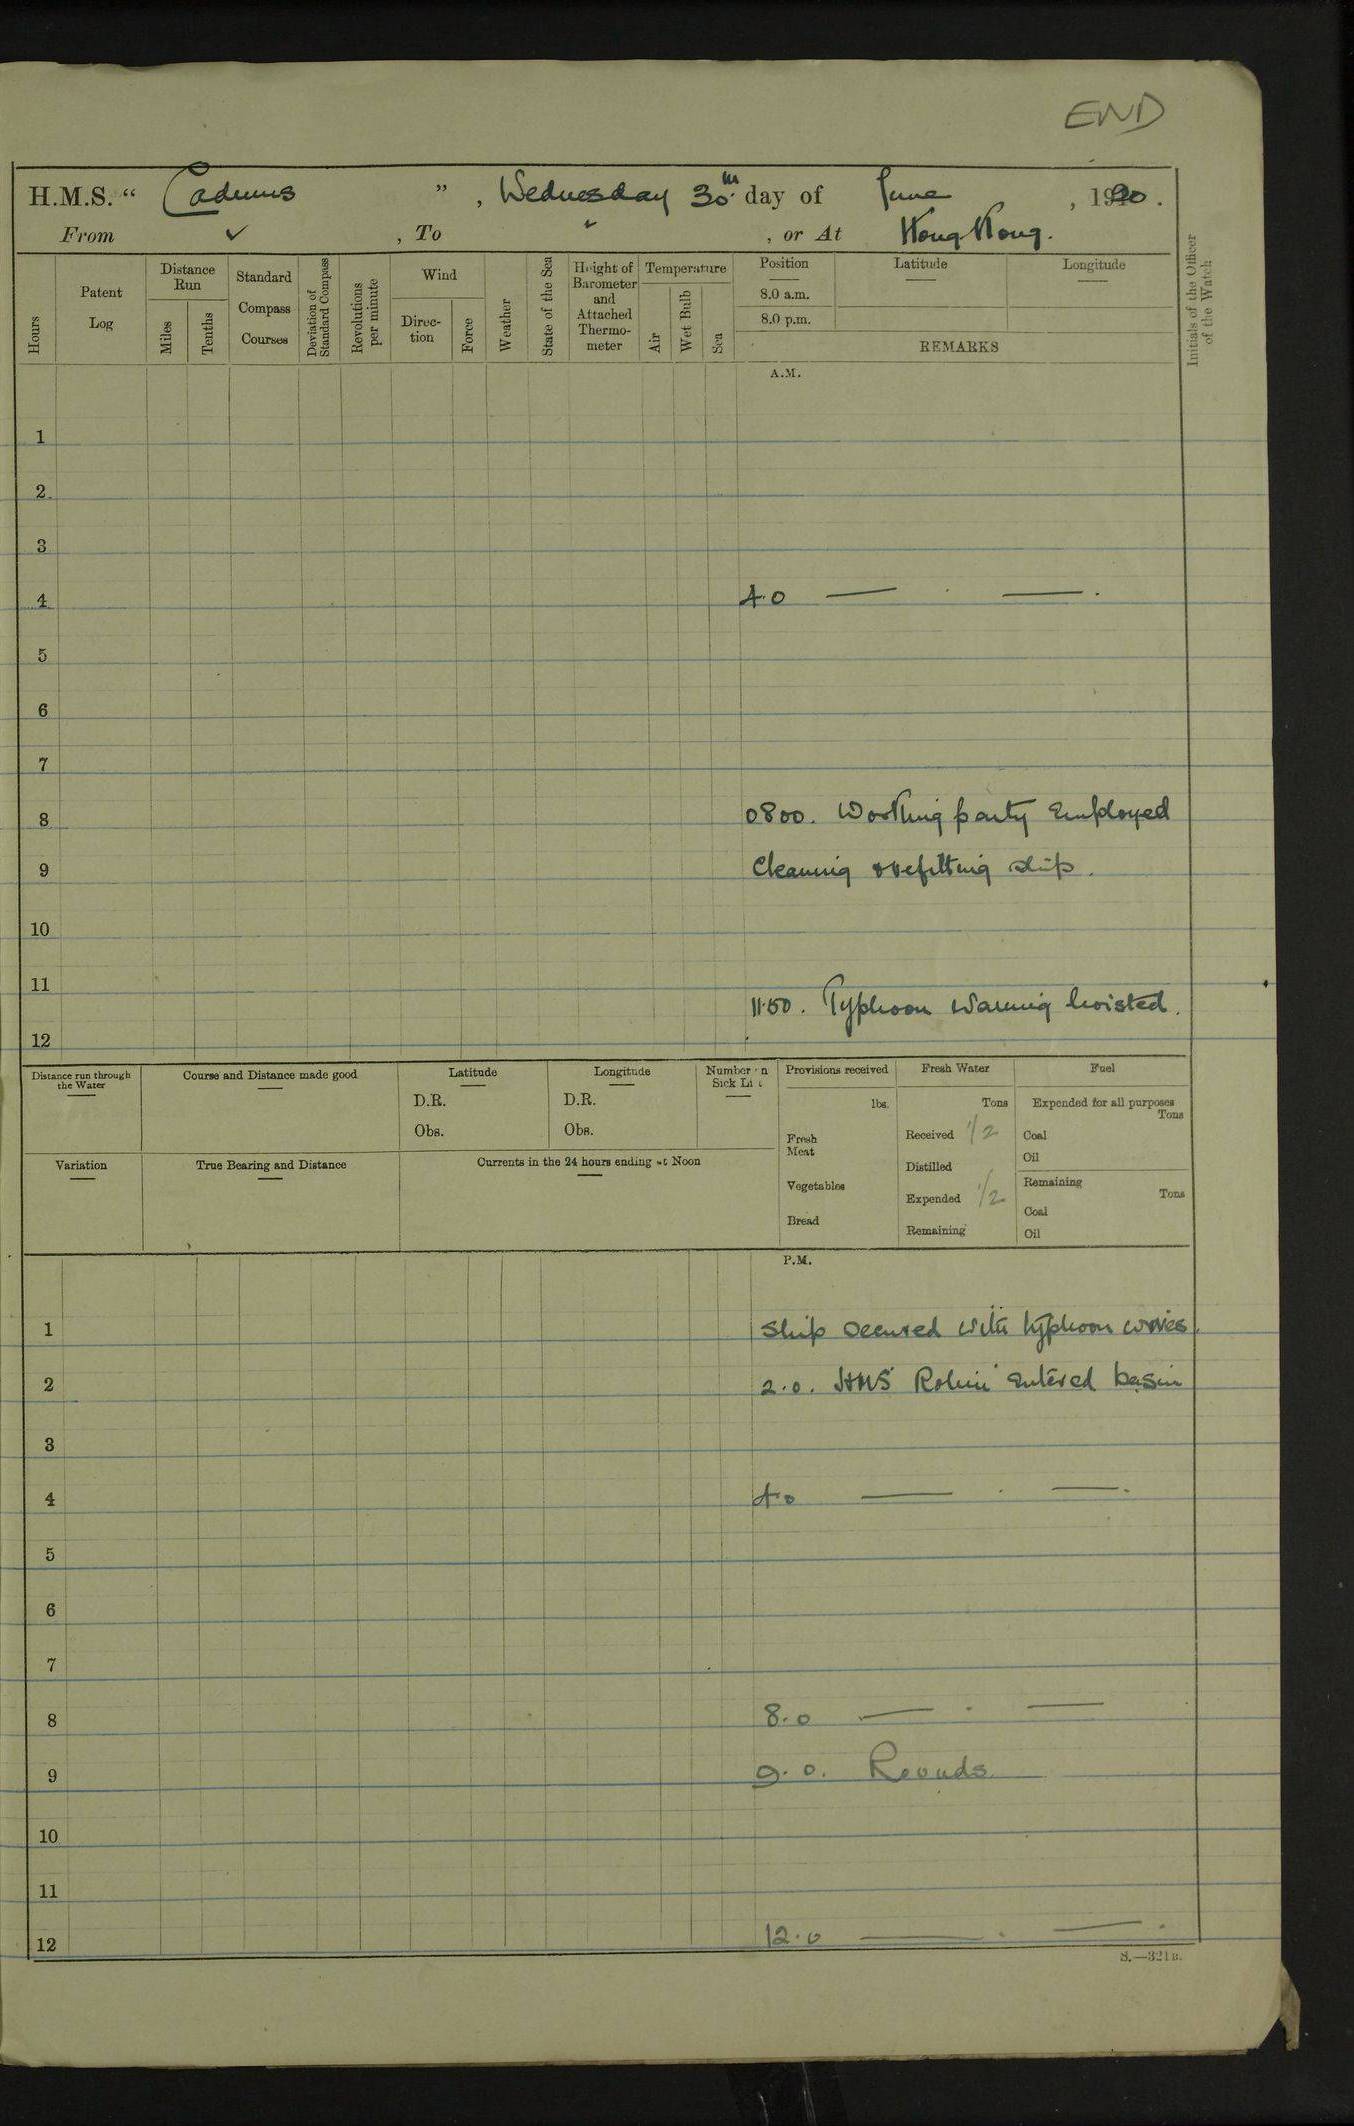 END
H.M.S. “ Cadmus ” , Wednesday 30th day of June , 1920 .
From ✓ , To ✓ , or At Hong Kong.
Hours
Patent Log
Distance Run
Miles
Tenths
Standard Compass Courses
Deviation of Standard Compass
Revolutions per minute
Wind
Direc-tion
Force
Weather
State of the Sea
Height of Barometer and Attached Thermo-meter
Temperature
Air
Wet Bulb
Sea
Position
8.0 a.m.
8.0 p.m.
Latitude
Longitude
REMARKS
Initials of the Officer of the Watch
A.M.
1
2
3
4 4.0 — . — .
5
6
7
8 0800. Working party employed
9 Cleaning & refitting ship.
10
11
11.50. Typhoon warning hoisted.
12
Distance run through the Water
Course and Distance made good
Latitude
D.R.
Obs.
Longitude
D.R.
Obs.
Number on Sick List
Provisions received
lbs.
Fresh Meat
Vegetables
Bread
Fresh Water
Tons
Received 1/2
Distilled
Expended 1/2
Remaining
Fuel
Expended for all purposes
Tons
Coal
Oil
Remaining
Tons
Coal
Oil
Variation
True Bearing and Distance
Currents in the 24 hours ending at Noon
P.M.
1 Ship secured with typhoon wires.
2 2.0. HMS 'Robin' entered basin
3
4 4.0 — . — .
5
6
7
8 8.0 — . —
9 9.0. Rounds
10
11
12 12.0 — . — .
S.—321B.